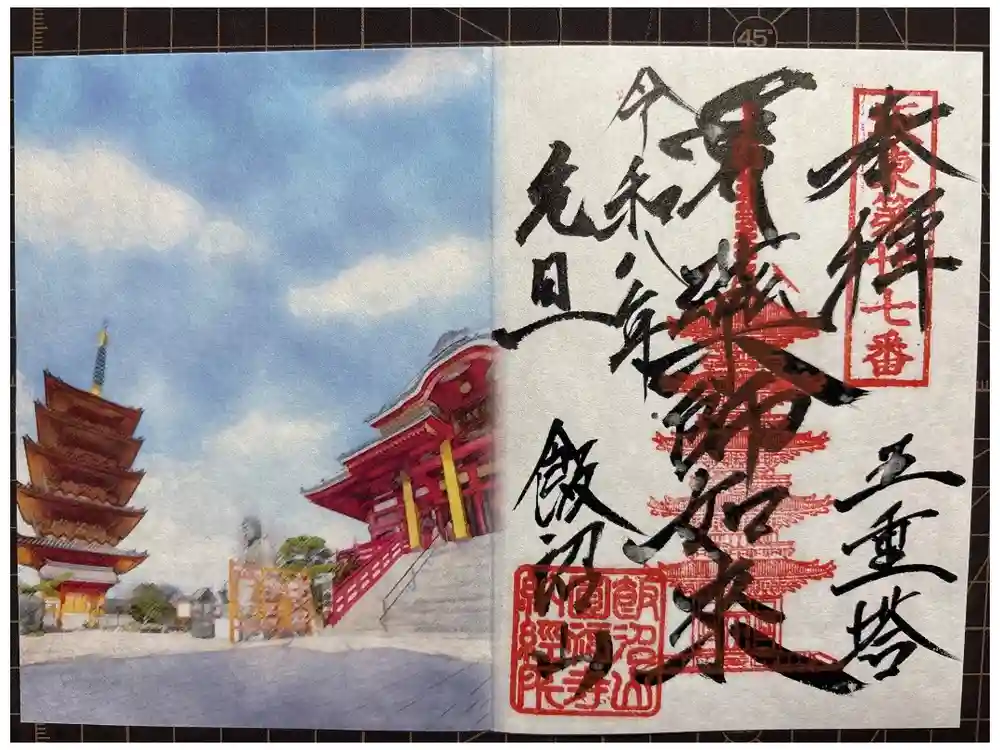 奉拝
坂東第廿七番
五重塔
薬師如来
令和八年
元旦
飯沼山
飯沼山
圓福寺
納經院
45°